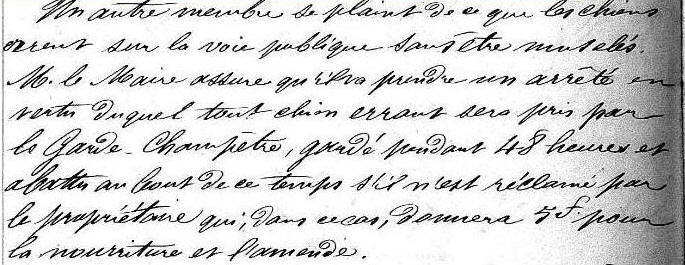 Un autre membre se plaint de ce que les chiens
errent sur la voie publique sans être muselés.
M. le Maire assure qu'il va prendre un arrêté en
vertu duquel tout chien errant sera pris par
le Garde-Champêtre, gardé pendant 48 heures et
abattu au bout de ce temps s'il n'est réclamé par
le propriétaire qui, dans ce cas, donnera 5f. pour
la nourriture et l'amende.